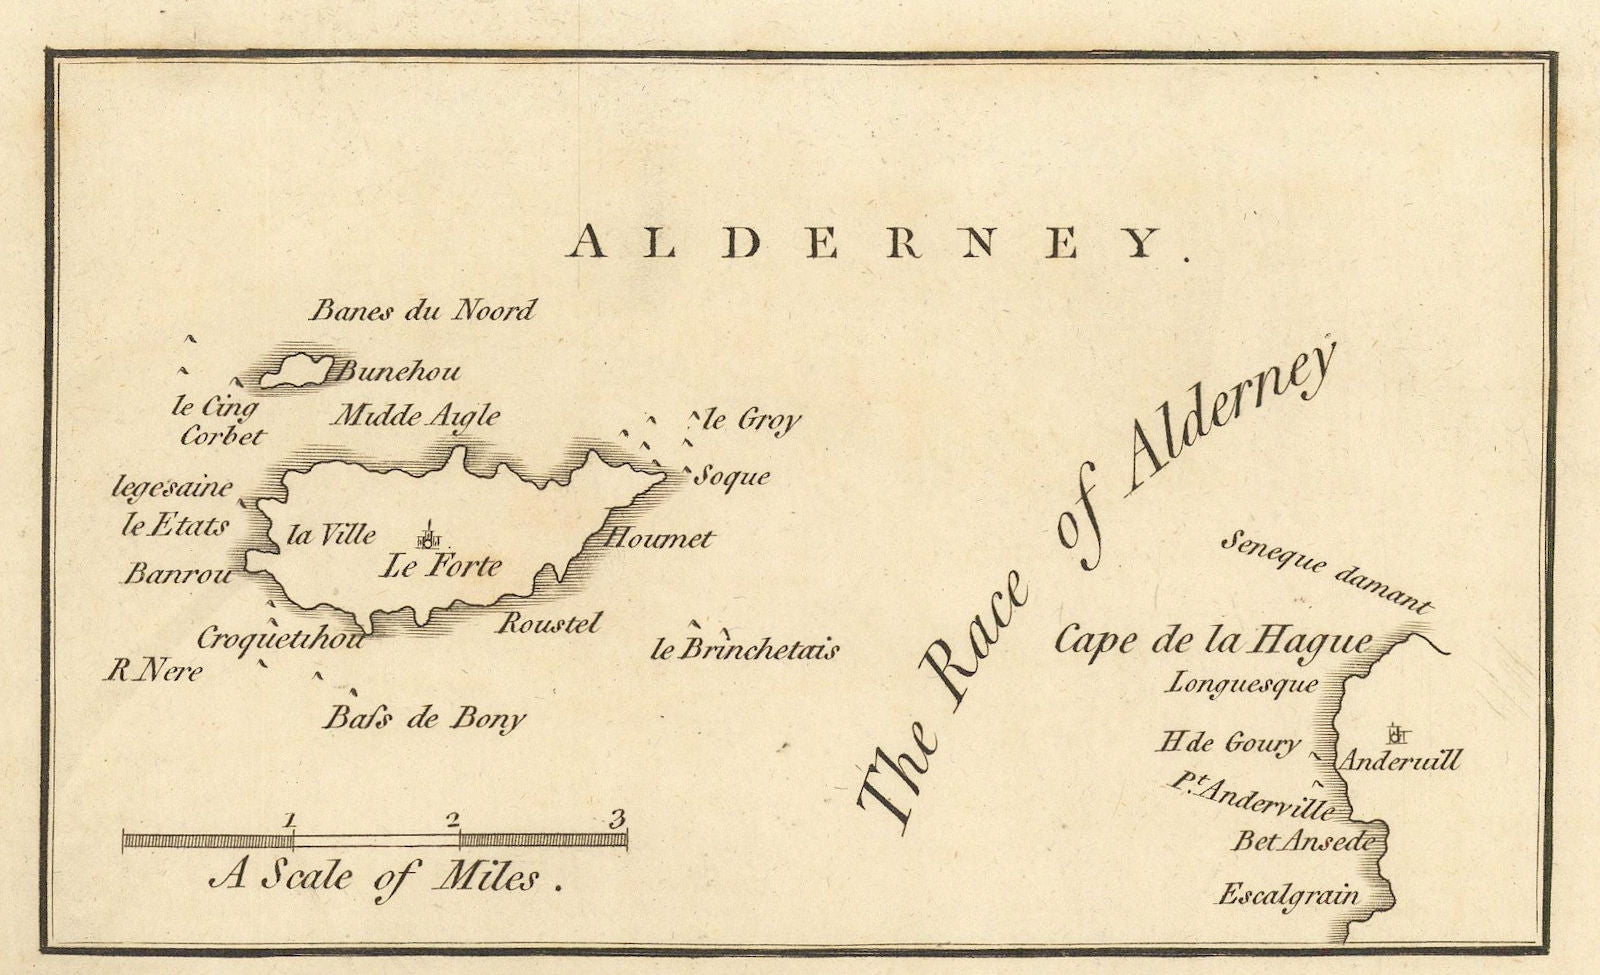 ALDERNEY.
Banes du Noord
Bunehou
le Cing
Corbet
Midde Aigle
le Groy
Soque
legesaine
le Etats
la Ville
Le Forte
Houmet
Banrou
Croquetihou
Roustel
R Nere
le Brinchetais
Baſs de Bony
The Race of Alderney
Seneque damant
Cape de la Hague
Longuesque
H de Goury
Anderuill
Pt. Anderville
Bet Ansede
Escalgrain
1 2 3
A Scale of Miles.